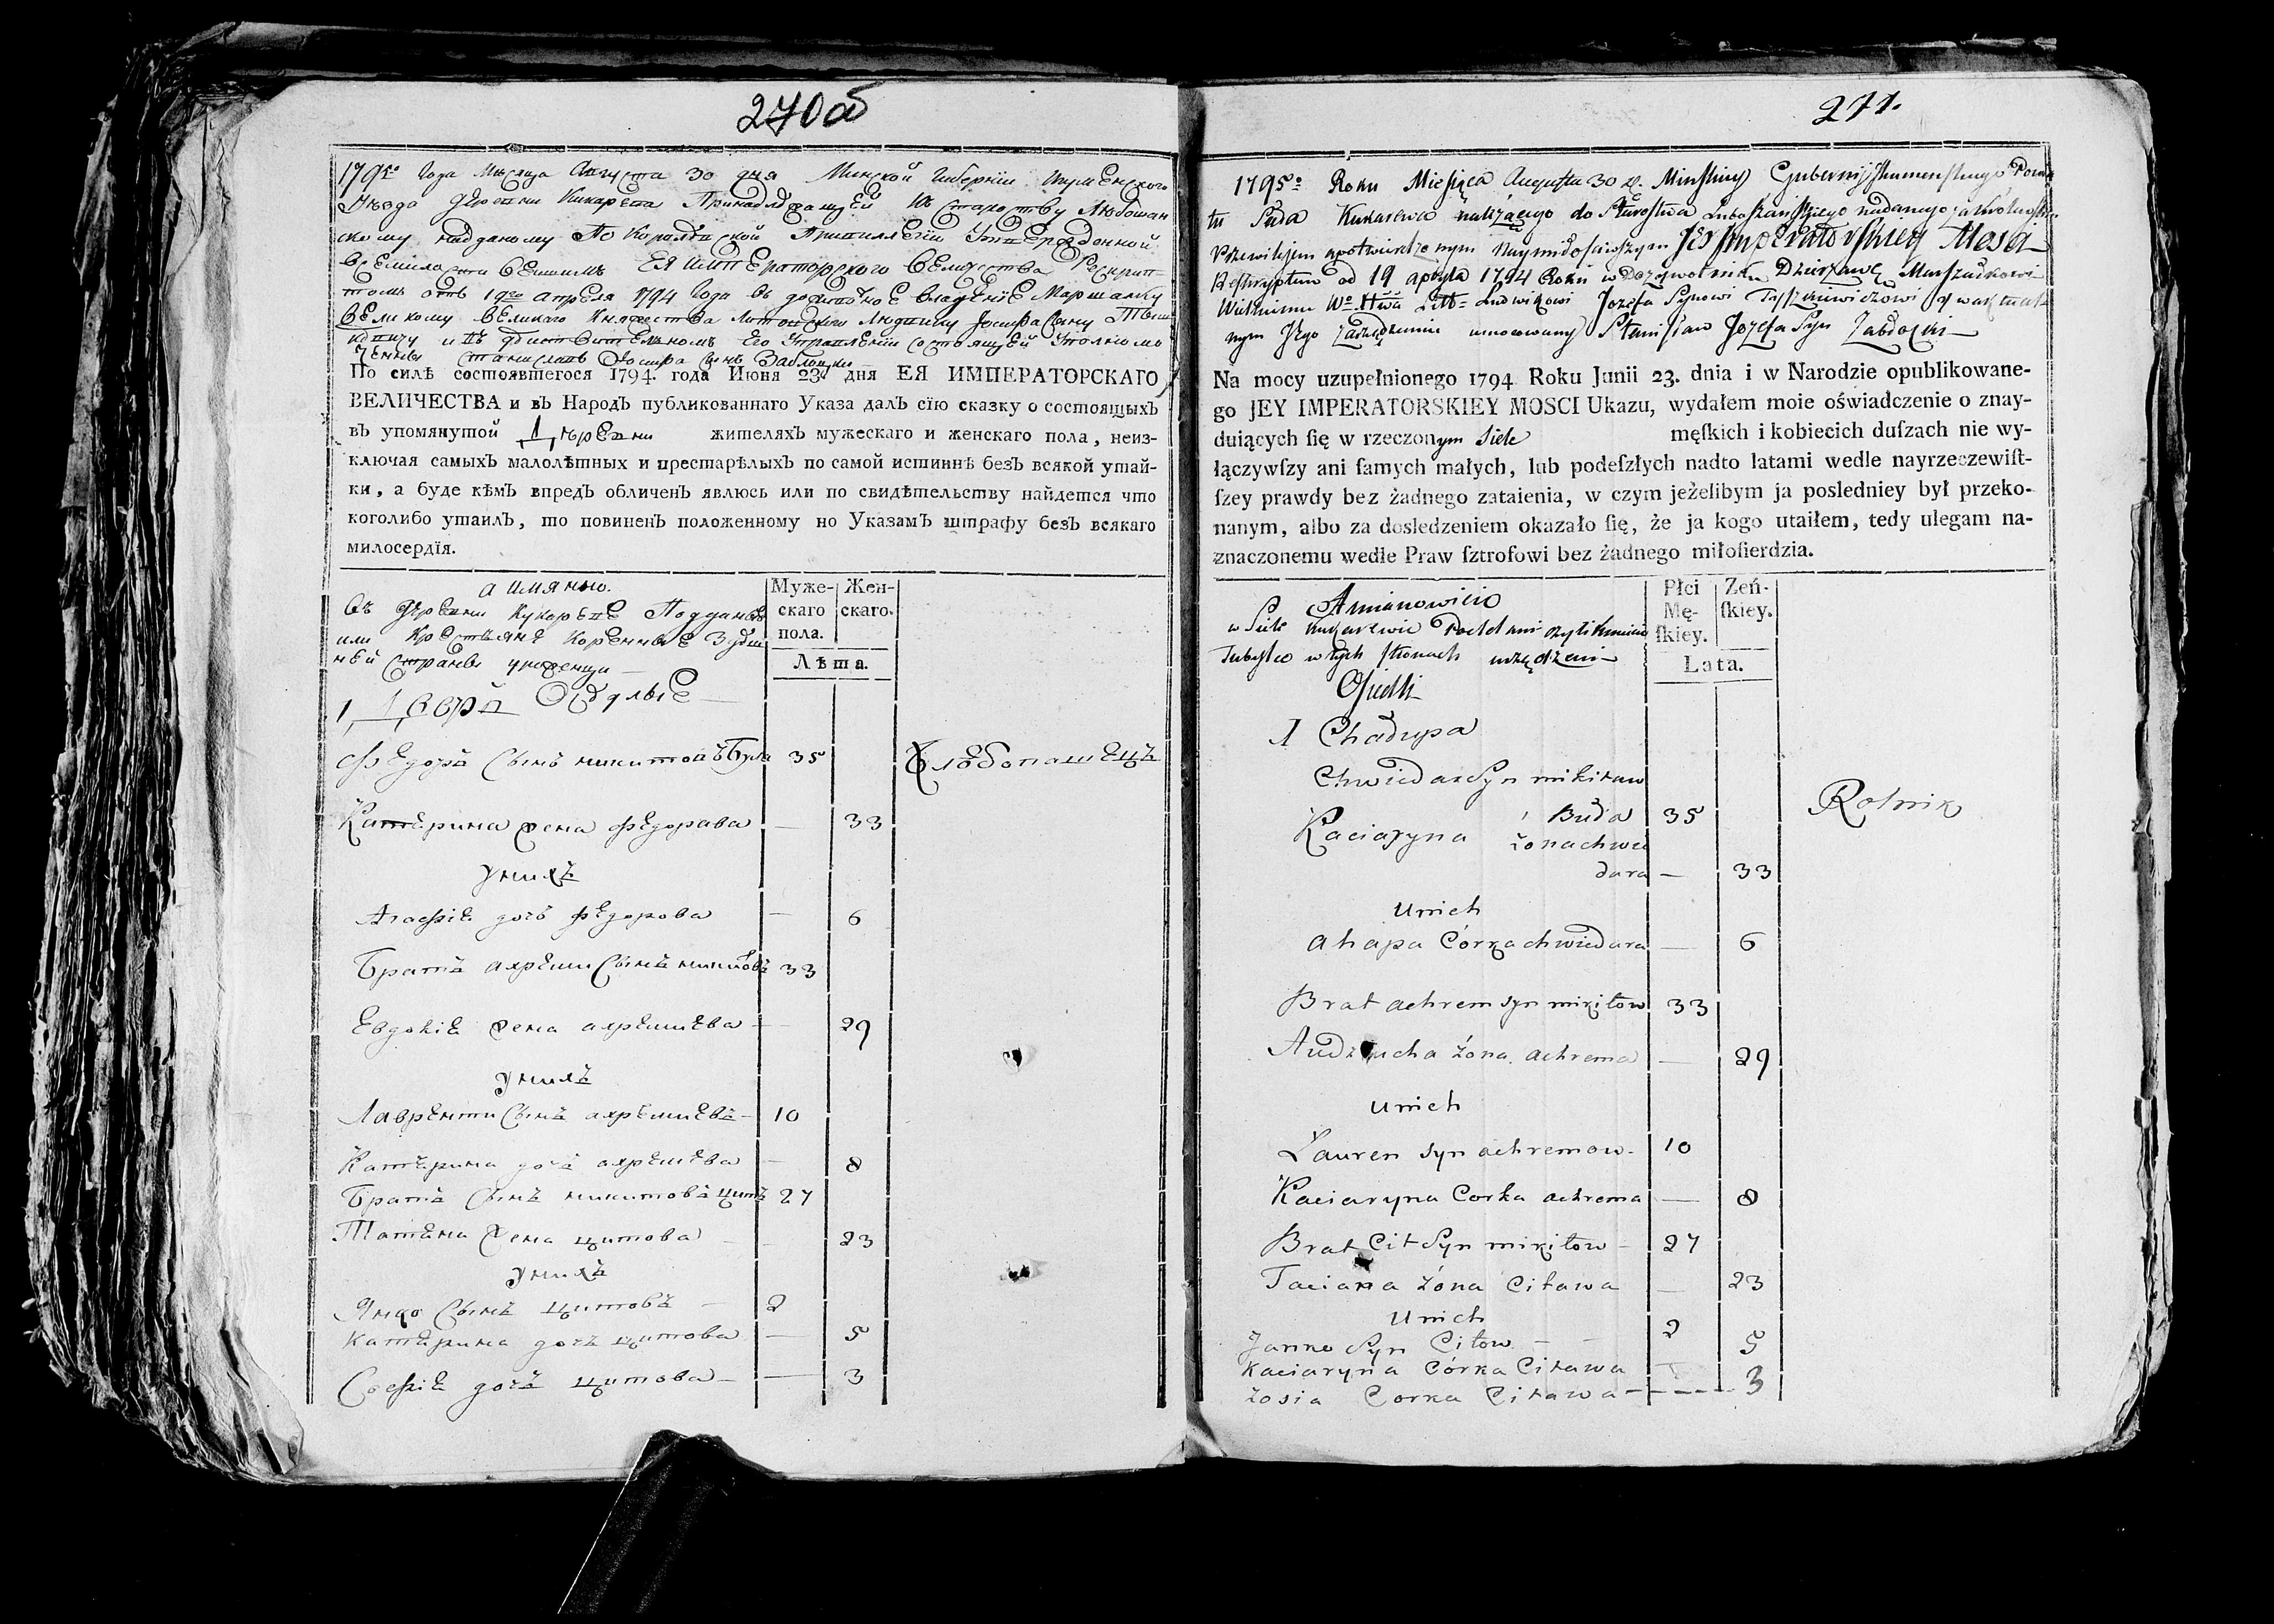 270об
1795го Года Месяца Августа 30 дня Минской Губернии Игуменского
Уезда Деревни Кукарева Принадлежащей к староству Любошан
скому наданому По Королевской Привиллегии Утвержденной
Всемилостивейшим ЕЯ ИМПЕРАТОРСКОГО Величества Рескрип
том отъ 19го апреля 1794 Года въ Владение Маршалку
Великому Великого Княжества Литовского Людвику Иосифа Сыну Тыш
кевичу и въ действительномъ Его Управлении состоящей
Станиславъ Иосифа Сынъ Заблоцки
По силѣ состоявшегося 1794. года Июня 23. дня ЕЯ ИМПЕРАТОРСКАГО
ВЕЛИЧЕСТВА и въ Народъ публикованнаго Указа далъ сїю сказку о состоящыхъ
въ упомянутой Деревни жителяхъ мужескаго и женскаго пола, неиз-
ключая самыхъ малолѣтныхъ и престарѣлыхъ по самой истиннѣ безъ всякой утай-
ки, а буде кѣмъ впредъ обличенъ явлюсь или по свидѣтельству найдется что
коголибо утаилъ, то повиненъ положенному по Указамъ штрафу безъ всякаго
милосердїя.
а имянно.
Муже-
скаго
пола.
Жен-
скаго.
Лѣта.
Въ Деревни Кукореве Подданые
или Крестьяне Коренные Здеш
ней Страны уроженцы
1 Дворъ Оседлые
Федоръ Сынъ микитовъ Буда 35 Хлебопашецъ
Катерина жена Федорава — 33
У нихъ
Агафия дочь Федорова — 6
Братъ ахреми Сынъ микитовъ 33
Евдокия жена ахремиева — 29
У нихъ
Лавренти Сынъ ахремиевъ — 10
Катерина дочь ахремиева — 8
Братъ Сынъ микитовъ цитъ 27
Татяна жена цитова — 23
У нихъ
Янко Сынъ цитовъ — 2
Катерина дочь цитова — 5
София дочь цитова — 3
271.
1795o Roku Miesiąca Augusta 30 d. Minskiey Gubernij Ihumenskiego Powia
tu Sioła Kukarewa należącego do Starostwa Luboszańskiego nadanego
Przewilejem apotwierdzonym Naymiłościwszym Jey Imperatorskiey Mosci
Reskryptem od 19 apryla 1794 Roku w Dożywotnik Dzierżawę Marszałkowi
Wielkiemu Wo Xtwa Litt. Ludwikowi Jozefa Synowi Tyszkiewiczowi y w aktual
nym Jego Zarządzeniu umocowany Stanisław Jozefa Syn Zabłocki
Na mocy uzupełnionego 1794 Roku Junii 23. dnia i w Narodzie opublikowane-
go JEY IMPERATORSKIEY MOSCI Ukazu, wydałem moie oświadczenie o znay-
duiących ſię w rzeczonym Siele męſkich i kobiecich duſzach nie wy-
łączywſzy ani ſamych małych, lub podeſzłych nadto latami wedle nayrzeczewiſt-
ſzey prawdy bez żadnego zataienia, w czym jeżelibym ja posledniey był przeko-
nanym, albo za dosledzeniem okazało ſię, że ja kogo utaiłem, tedy ulegam na-
znaczonemu wedle Praw ſztrofowi bez żadnego miłoſierdzia.
Amianowicie
Płci
Mę-
ſkiey.
Zeń-
ſkiey.
Lata.
w Siele Kukarewie Poddani czyli Kmiecie
Tubylce w tych stronach urodzeni
Osiedli
1 Chałupa
Chwiedar Syn mikitow
Buda 35 Rolnik
Kaciaryna żona chwie
dara — 33
U nich
ahapa Córka chwiedara — 6
Brat achrem syn mikitow 33
Audziucha żona achrema — 29
U nich
Łauren syn achremow. 10
Kaciaryna Corka achrema — 8
Brat Cit Syn mikitow — 27
Taciana żona Citawa — 23
U nich
Janko Syn Citow — — 2
Kaciaryna Córka Citawa — 5
Zosia Corka Citawa — 3